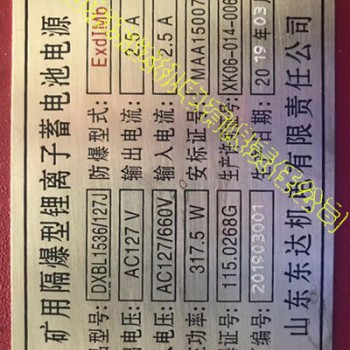 矿用隔爆型锂离子蓄电池电源
品型号: DXBL1536/127J 防爆型式: ExdⅠMb
出电压: AC127 V 输出电流: 2.5 A
入电压: AC127/660V 输入电流: 2.5 A
功率: 317.5 W 安标证号: MAA15007
证号: 115.0268G 生产许 XK06-014-006
编号: 201903001 生 日期: 2019年03
山东东达机电有限责任公司